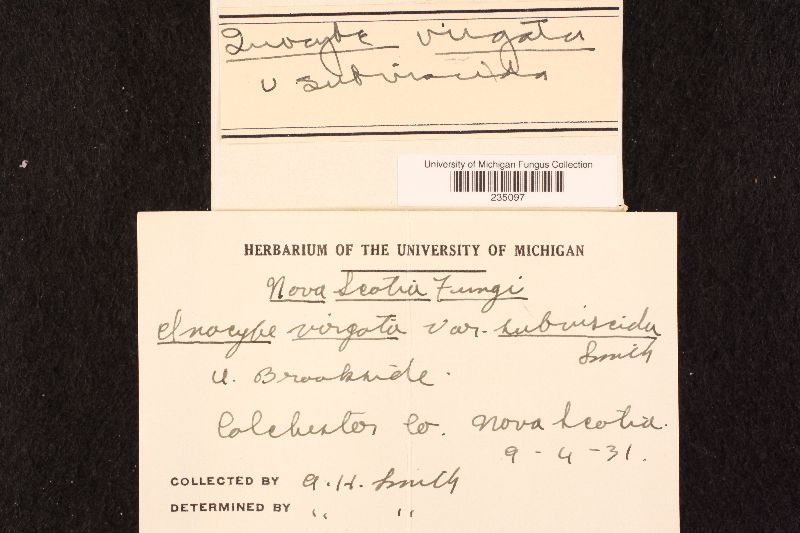 Inocybe virgata
v subviscida
University of Michigan Fungus Collection
235097
HERBARIUM OF THE UNIVERSITY OF MICHIGAN
Nova Scotia Fungi
Inocybe virgata var. subviscida
Smith
U. Brookside.
Colchester Co. Nova Scotia.
9-4-31.
COLLECTED BY A.H. Smith
DETERMINED BY " "